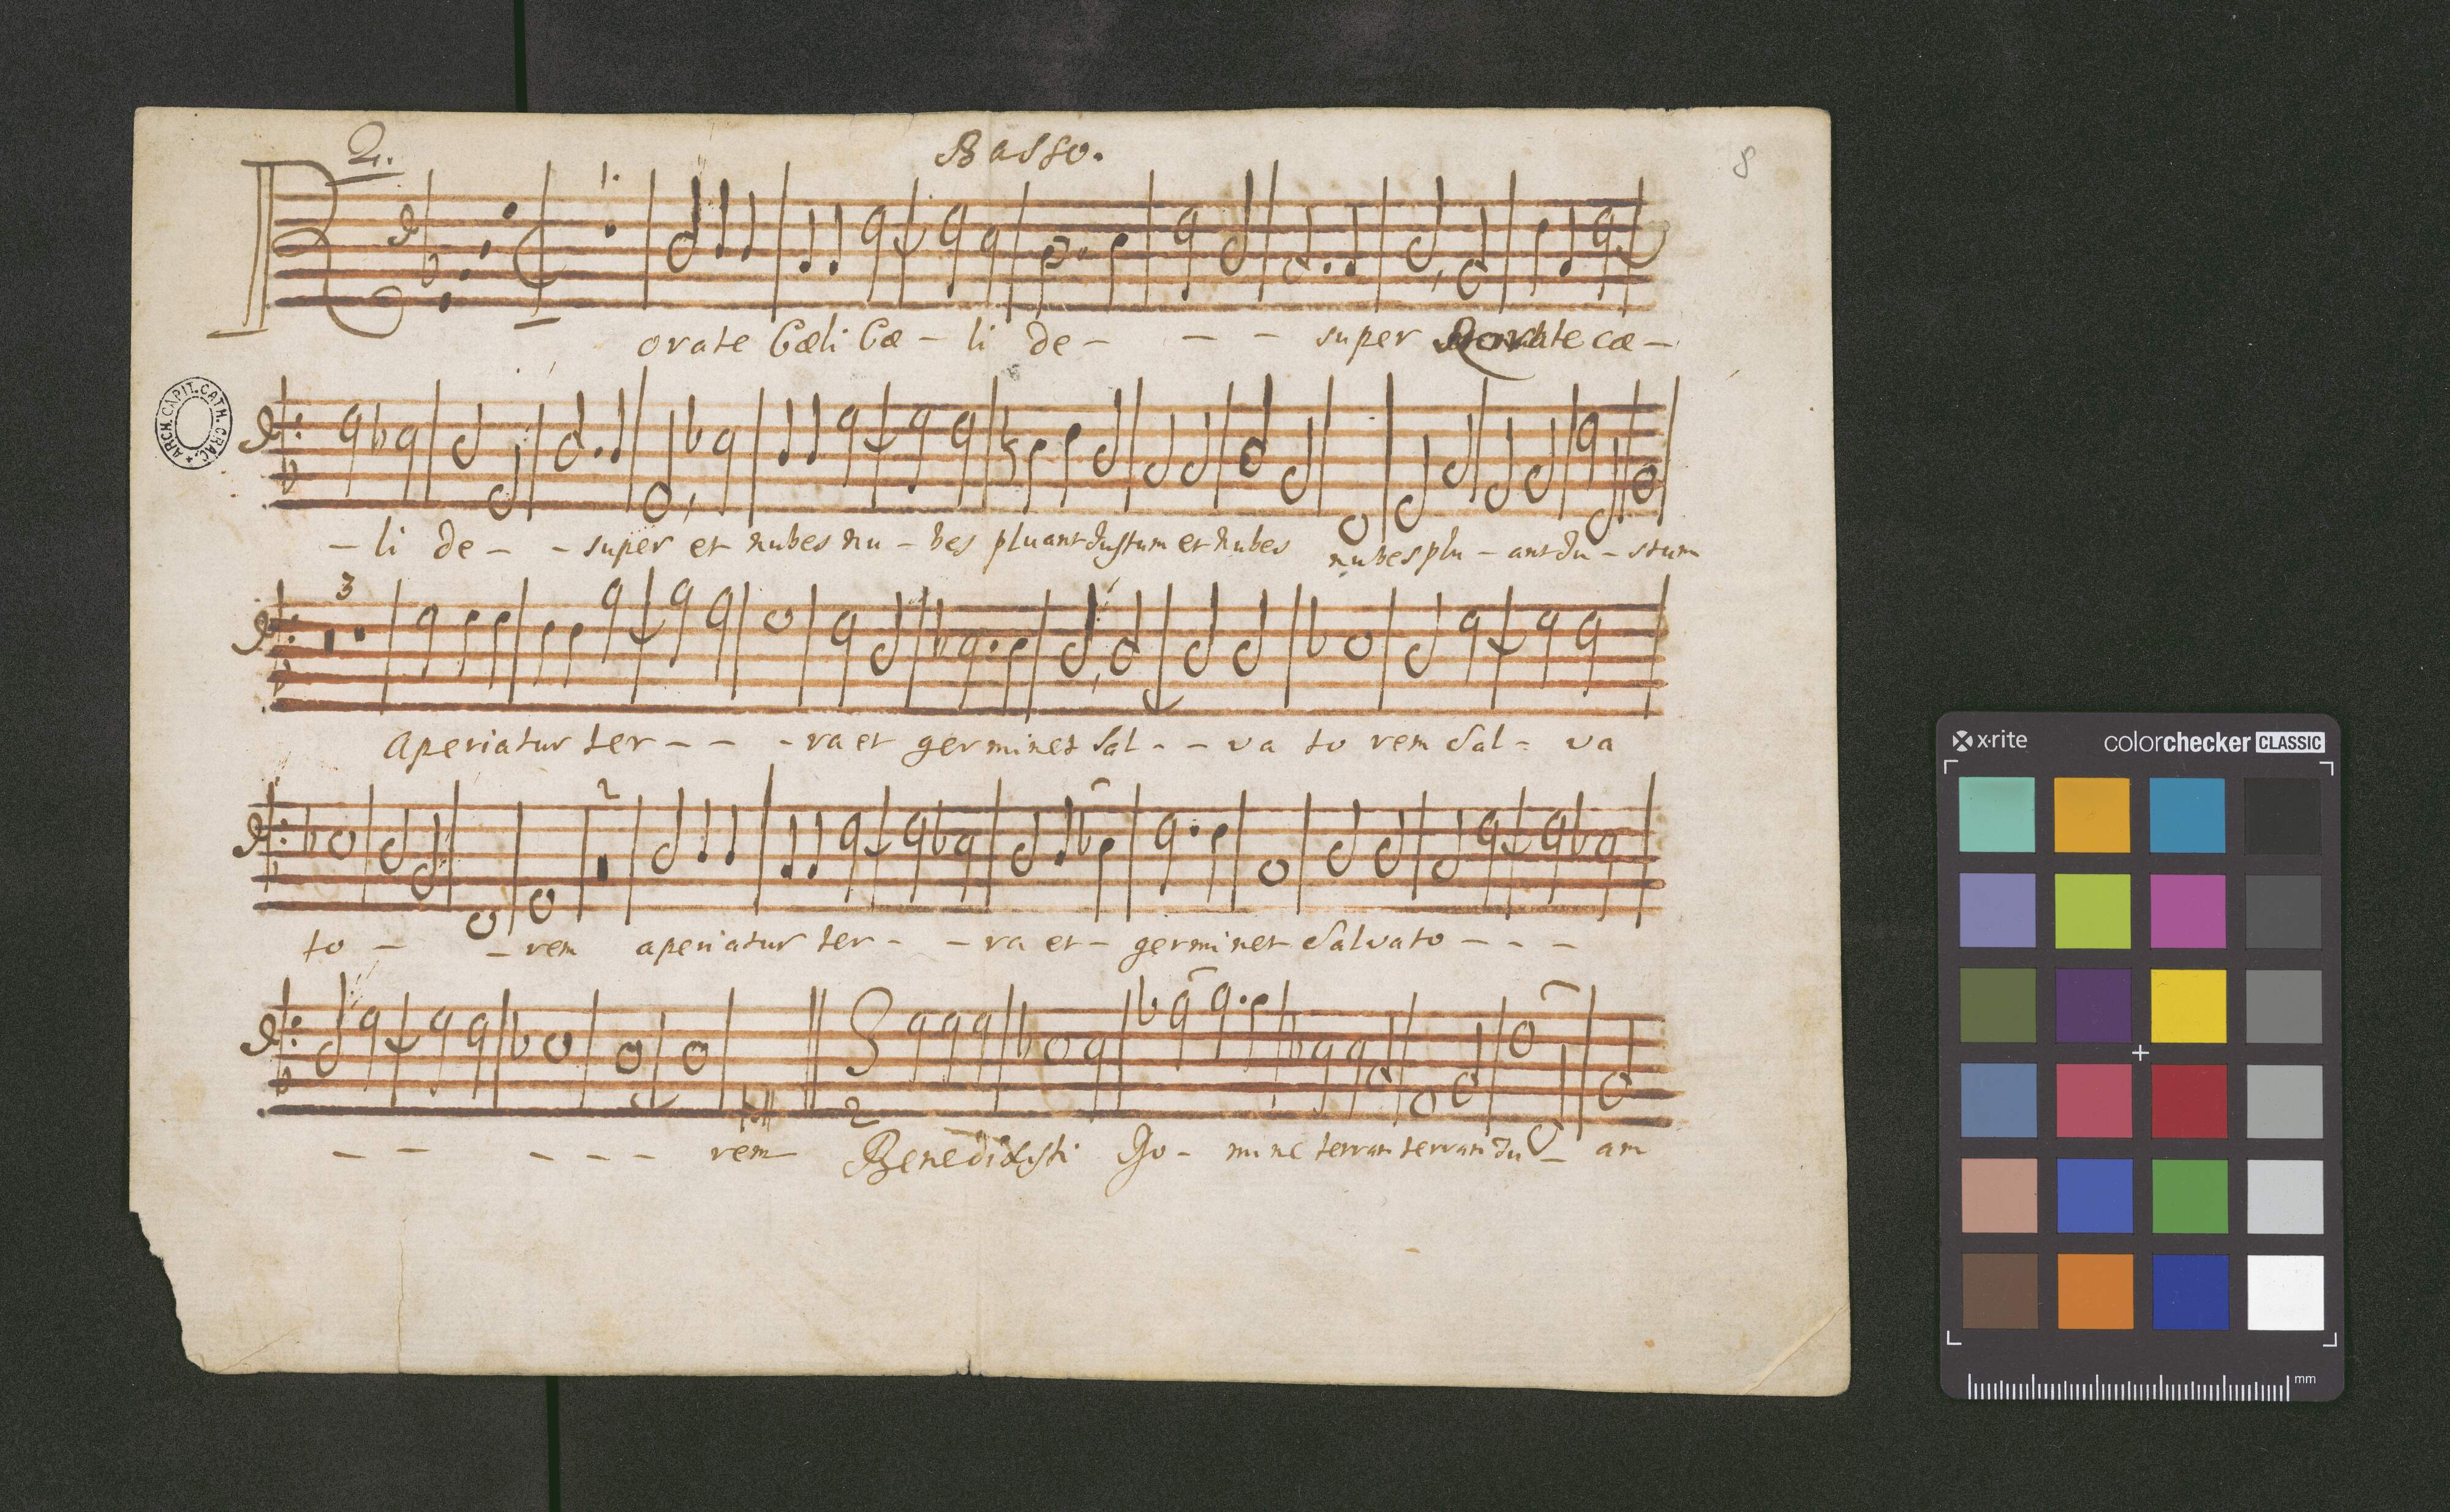 2.
Basso.
8
R
1.
orate Cæli Cæ - li de - - - super Rorate cæ -
ARCH. CAPIT. CATH. CRAC.
- li de - - super et nubes nu - bes pluant Justum et nubes nubes plu - ant Ju - stum
3
Aperiatur ter - - - ra et germinet Sal - - va to rem Sal - va
2
to - - rem aperiatur ter - - ra et - germinet Salvato - - -
- - - - - rem Benedixisti Do - mine terram terram tu - am
2
x·rite
colorchecker CLASSIC
mm